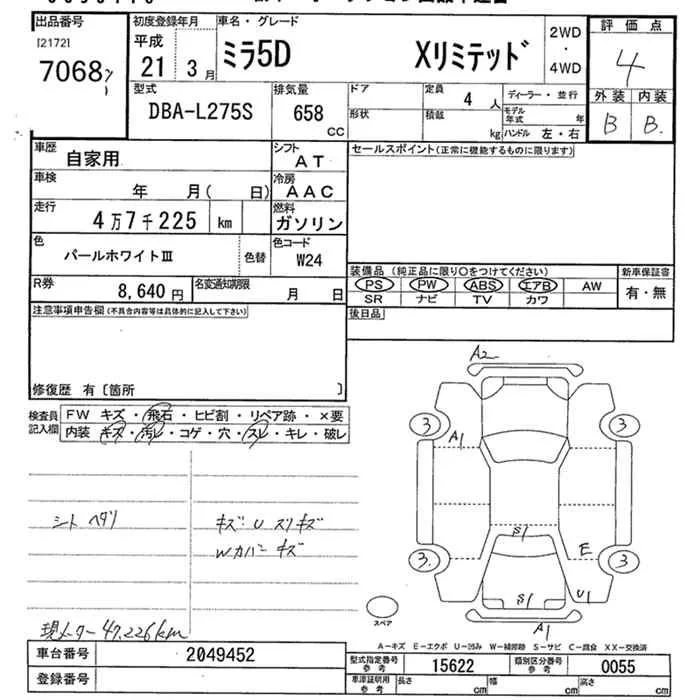 出品番号 初度登録年月 車名・グレード 評価点
[2172]
7068
平成 21 3月 ミラ5D Xリミテッド 2WD・4WD 4
型式 排気量 ドア 定員 ディーラー・並行 外装 内装
DBA-L275S 658 CC 4人 形状 積載 kg モデル年式 年 ハンドル 左・右 B B
車歴 自家用 シフト AT セールスポイント(正常に機能するものに限ります)
車検 年 月( 日) 冷房 AAC
走行 4万7千225 km 燃料 ガソリン
色 パールホワイトⅢ 色替 色コード W24
装備品(純正品に限り○をつけてください) 新車保証書
PS PW ABS エアB AW 有・無
SR ナビ TV カワ
R券 8,640円 名変通知期限 月 日
後日品
注意事項申告欄(不具合内容等は具体的に記入して下さい)
修復歴 有〔箇所 〕
検査員記入欄 FW キズ・飛石・ヒビ割・リペア跡・×要
内装 キズ・汚レ・コゲ・穴・スレ・キレ・破レ
シート ヘタリ
キズ U スリキズ
Wカバー キズ
A2
3 A1 3
S1
3 E 3
S1 U1
A1
スペア
現メーター 47,226km
A-キズ E-エクボ U-凹み W-補修跡 S-サビ C-腐食 XX-交換済
車台番号 2049452 型式指定番号 参考 15622 類別区分番号 参考 0055
登録番号 車庫証明用 参考 長さ cm 幅 cm 高さ cm